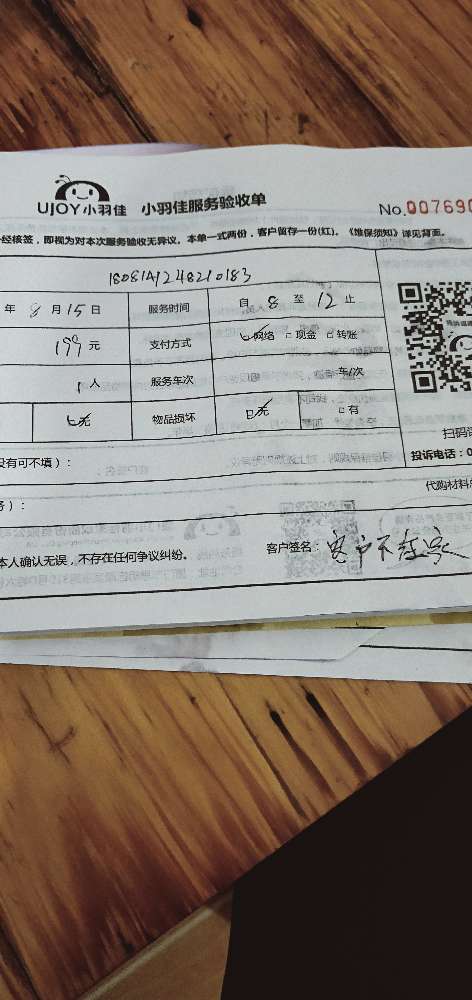 UJOY小羽佳 小羽佳服务验收单 No.007690
经核签，即视为对本次服务验收无异议。本单一式两份，客户留存一份(红)。《维保须知》详见背面。
年 8 月 15 日 服务时间 自 8 至 12 止
199 元 支付方式 网络 现金 转账
1 人 服务车次 车/次
无 物品损坏 无 有
扫码
没有可不填）：
投诉电话：0
代购材料
本人确认无误，不存在任何争议纠纷。 客户签名：客户不在家